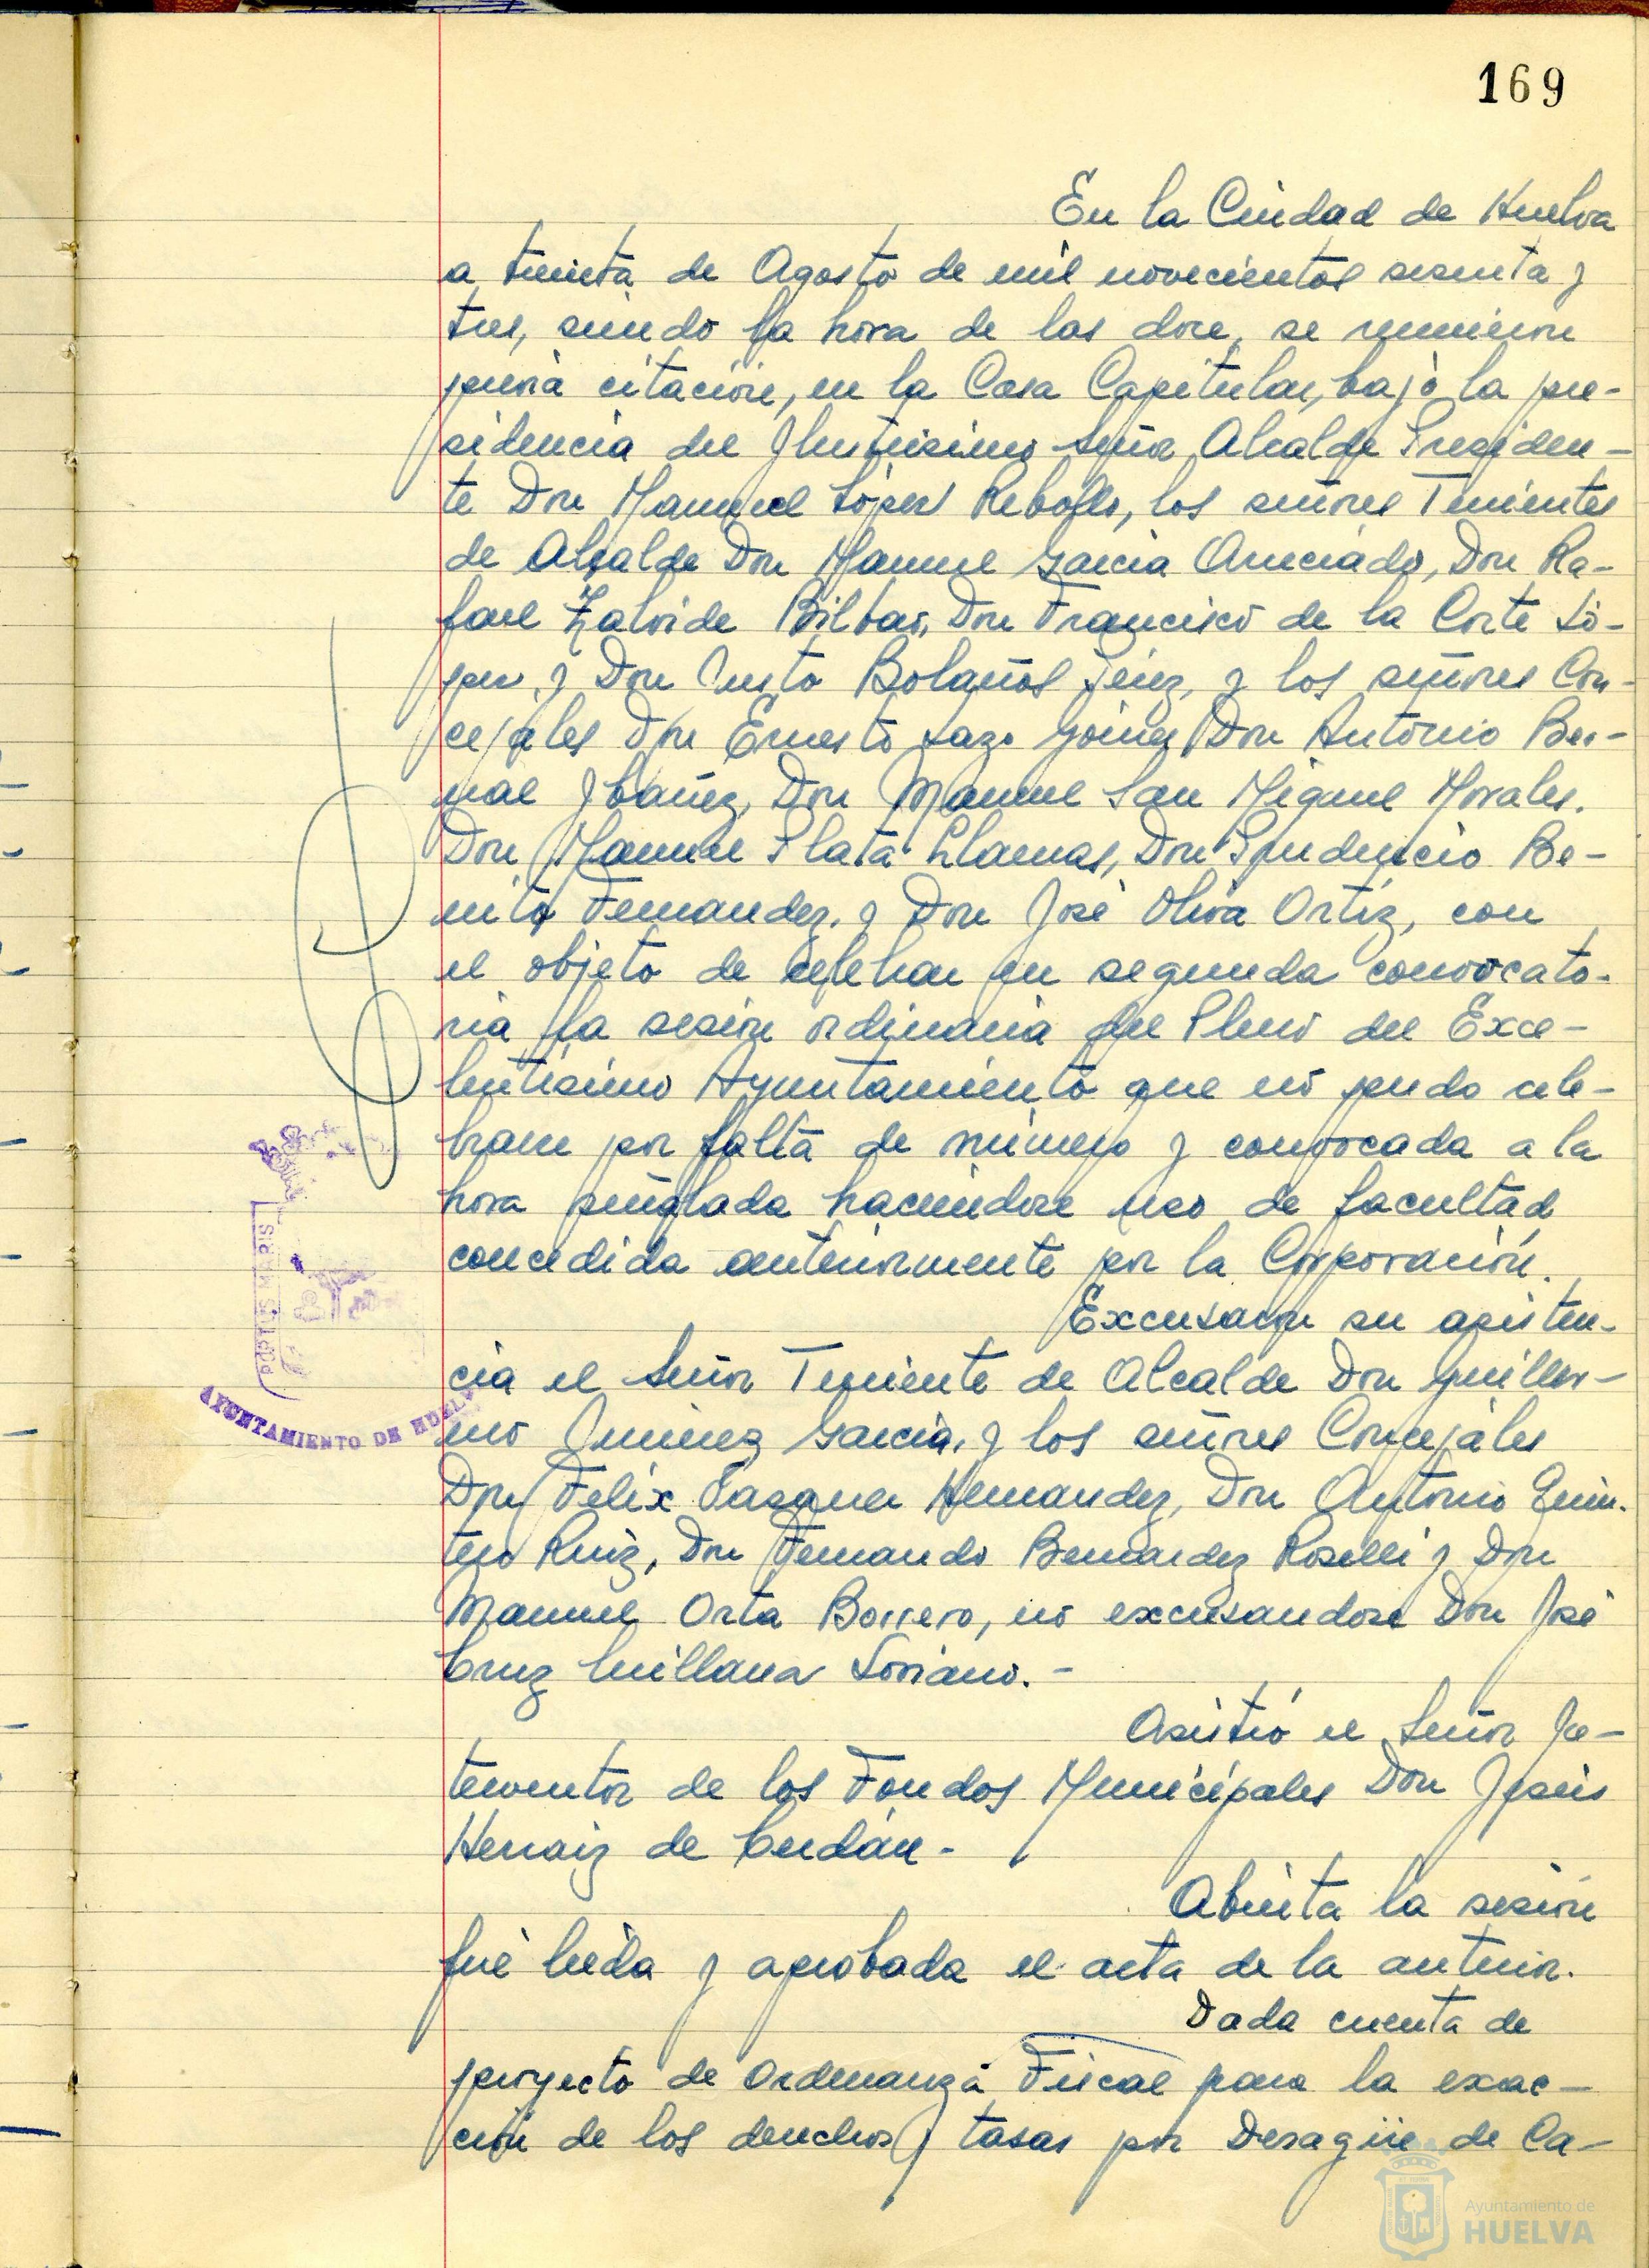 169
En la Ciudad de Huelva
a treinta de Agosto de mil novecientos sesenta y
tres, siendo la hora de las doce, se reunieron
previa citación, en la Casa Capitular, bajo la pre-
sidencia del Ilustrisimo Señor Alcalde Presiden-
te Don Manuel López Rebollo, los señores Tenientes
de Alcalde Don Manuel Garcia Anreciado, Don Ra-
fael Zalvide Bilbao, Don Francisco de la Corte Ló-
pez, y Don Justo Bolaños Jerez, y los señores Con-
cejales Don Ernesto Lazo Gómez, Don Antonio Ber-
nal Ybañez, Don Manuel San Miguel Morales,
Don Manuel Plata Llamas, Don Prudencio Be-
nito Fernandez, y Don José Oliva Ortiz, con
el objeto de celebrar en segunda convocato-
ria la sesión ordinaria del Pleno del Exce-
lentisimo Ayuntamiento que no pudo cele-
brarse por falta de número y convocada a la
hora señalada haciendose uso de facultad
concedida anteriormente por la Corporación.
Excusaron su asisten-
cia el Señor Teniente de Alcalde Don Guiller-
mo Jimenez Garcia, y los señores Concejales
Don Felix Vazquez Hernandez, Don Antonio Quin-
tero Ruiz, Don Fernando Bernardez Roselli y Don
Manuel Orta Borrero, no excusandose Don José
Cruz Millana Soriano.-
Asistió el Señor In-
terventor de los Fondos Municipales Don Jesús
Herraiz de Cerdán.-
Abierta la sesión
fué leida y aprobada el acta de la anterior.
Dada cuenta de
proyecto de Ordenanza Fiscal para la exac-
ción de los derechos y tasas por Desagüe de Ca-
PORTUS MARIS
AYUNTAMIENTO DE HUELVA
Ayuntamiento de
HUELVA